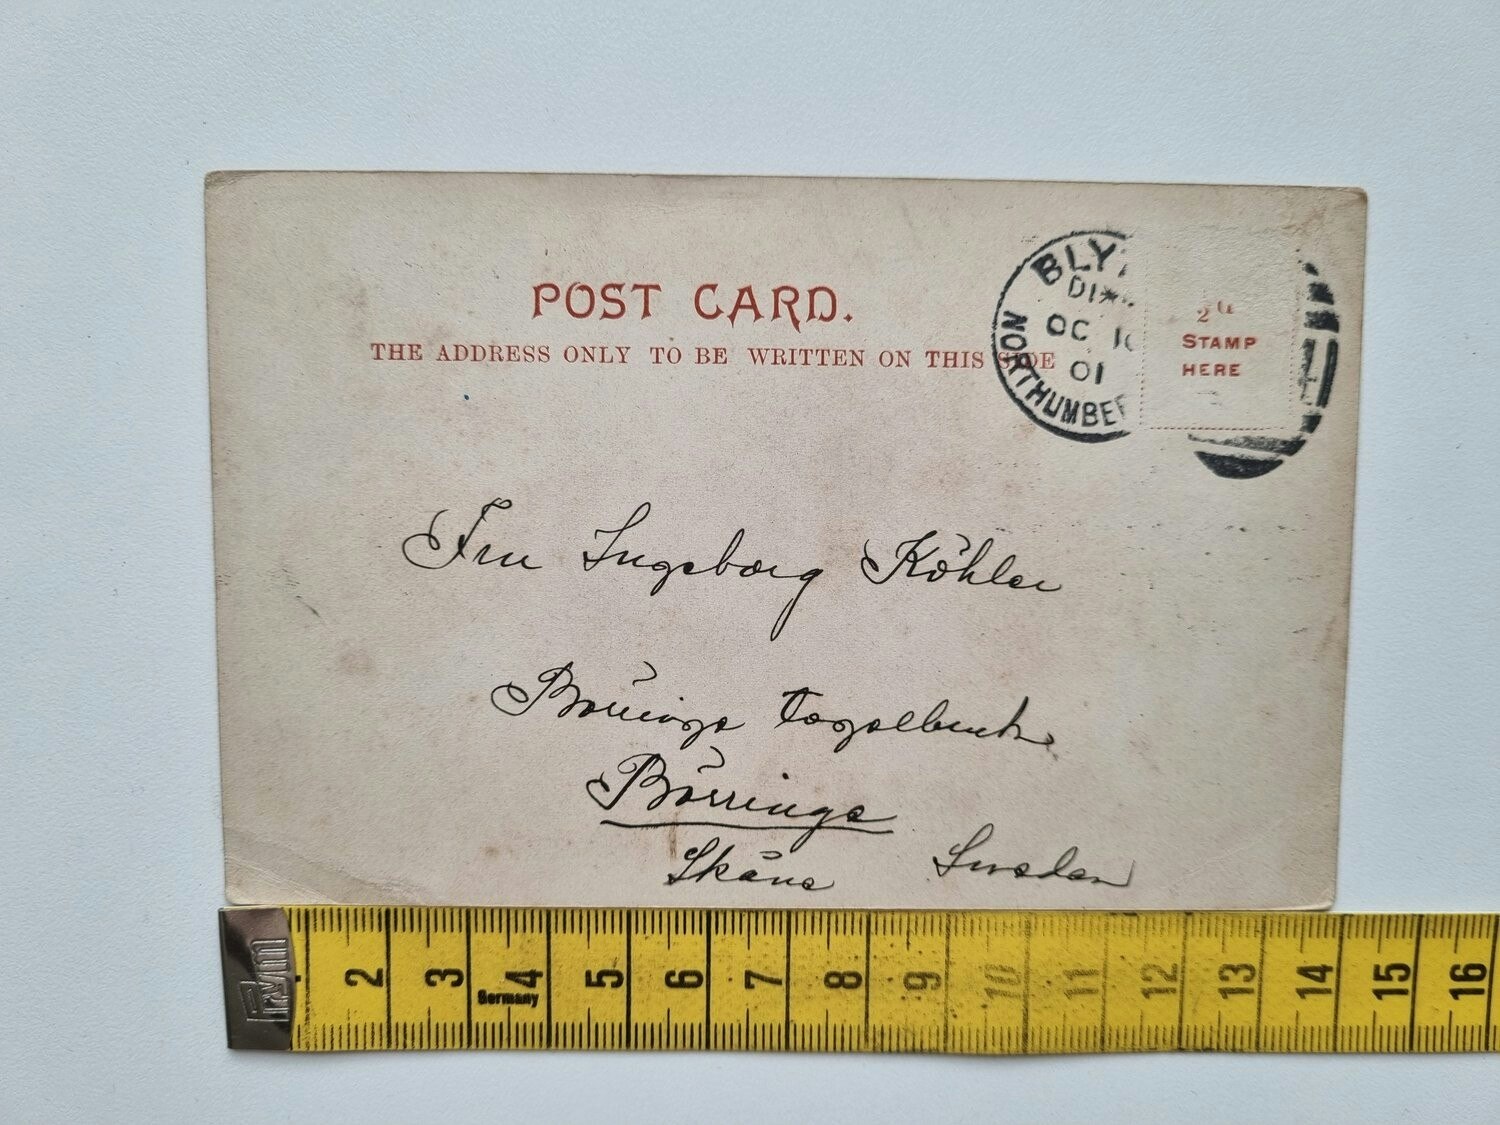 POST CARD.
THE ADDRESS ONLY TO BE WRITTEN ON THIS SIDE
BLY
OC
01
NORTHUMBER
STAMP
HERE
Fru Ingeborg Köhler
Börringe
Börringe
Skåne Sweden
Prym
2 3 4 5 6 7 8 9 10 11 12 13 14 15 16
Germany